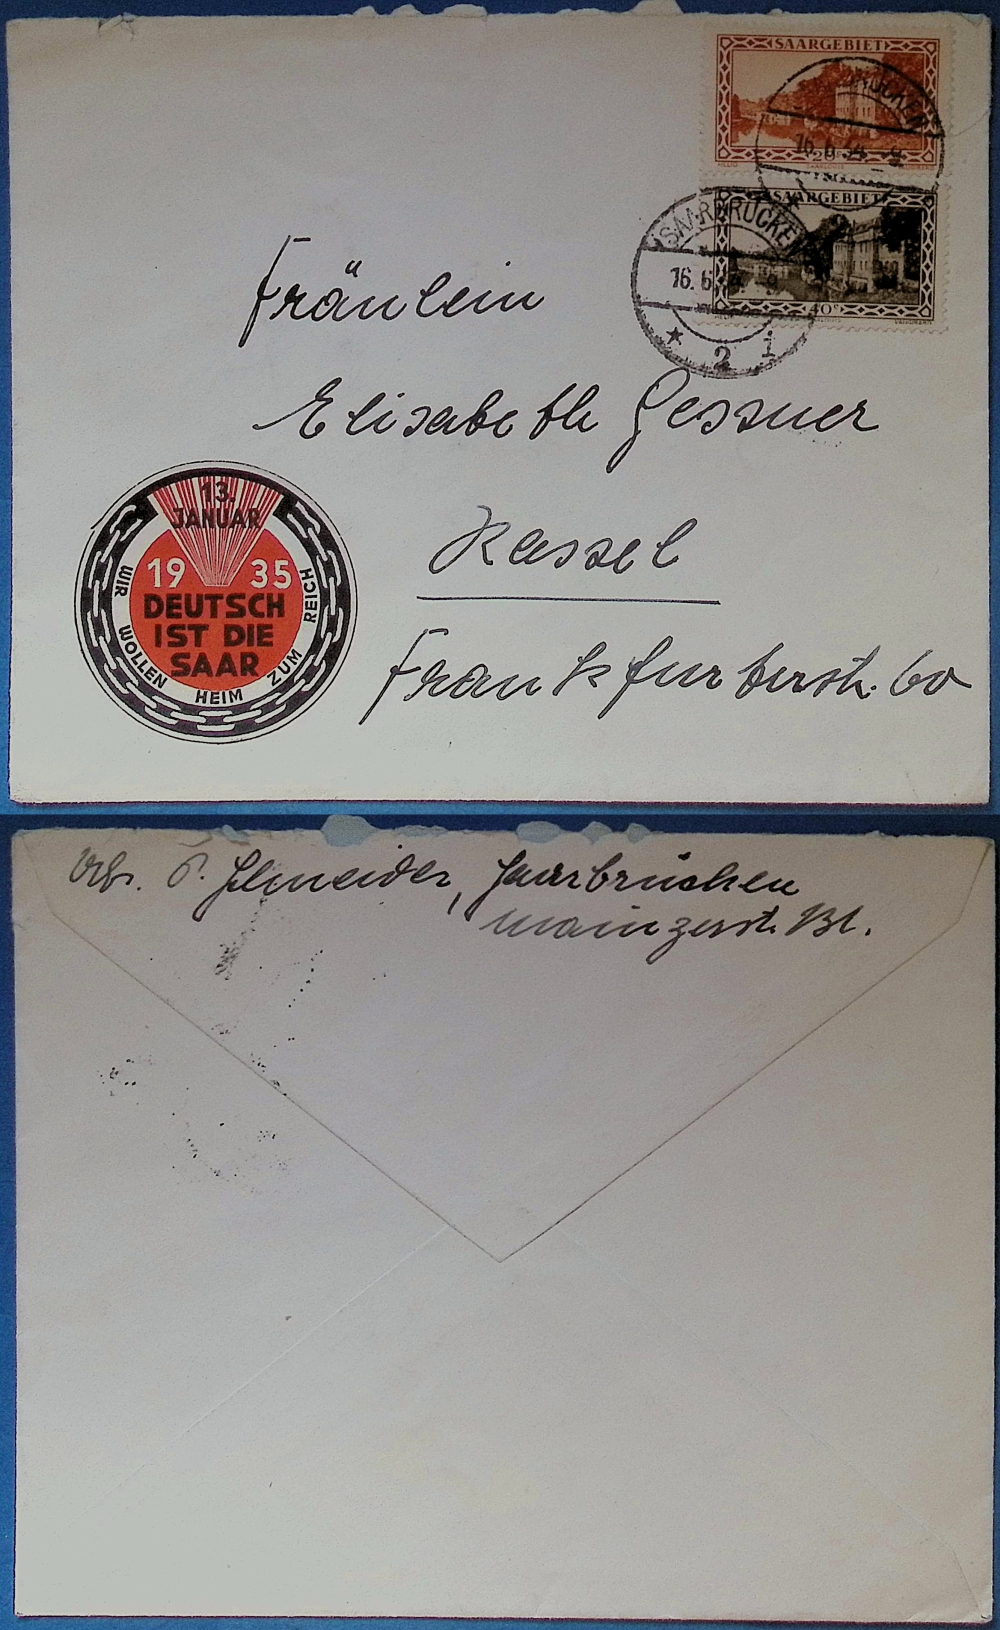 SAARGEBIET
SAARBRÜCKEN
16.6.34.-9
SAARGEBIET
40 c
SAARBRÜCKEN
16.6.34.-9
★ 2 i
Fräulein
Elisabeth Gessner
Kassel
Frankfurterstr. 60
13.
JANUAR
19 35
DEUTSCH
IST DIE
SAAR
WIR WOLLEN HEIM ZUM REICH
P. Schneider, Saarbrücken
Mainzerstr.